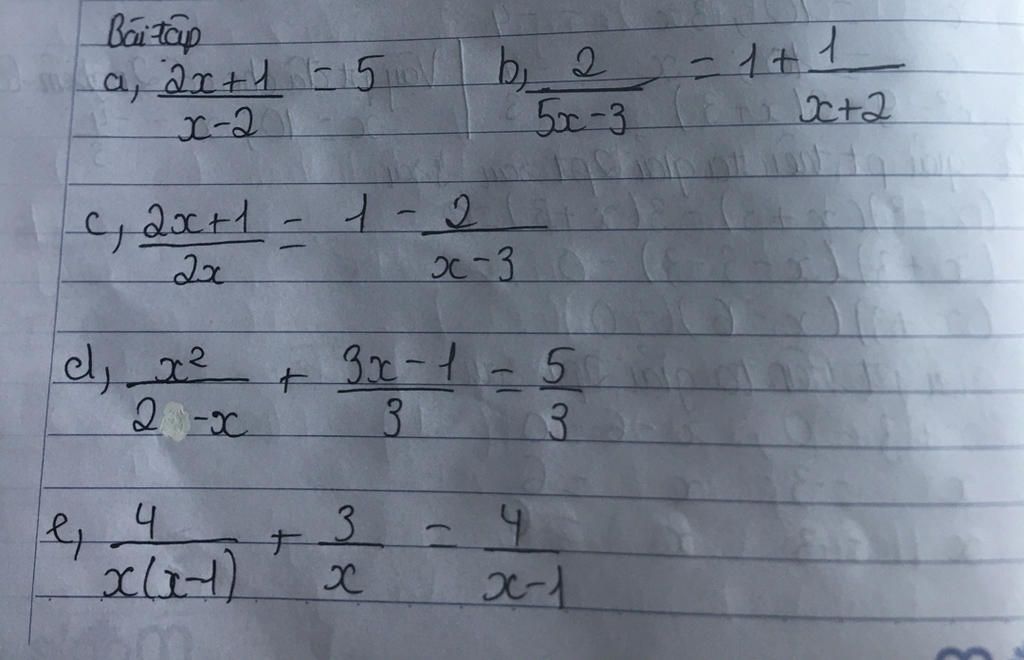 Bài tập
a, (2x+1)/(x-2) = 5 b, 2/(5x-3) = 1 + 1/(x+2)
c, (2x+1)/(2x) = 1 - 2/(x-3)
d, x²/(2-x) + (3x-1)/3 = 5/3
e, 4/(x(x-1)) + 3/x = 4/(x-1)